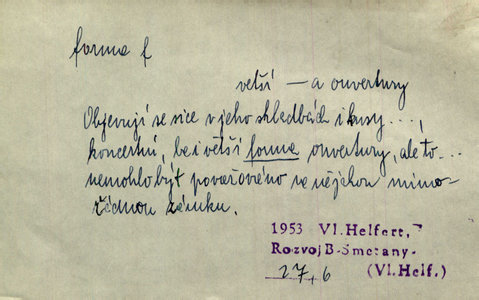 forma f
větší — a ouvertury
Objevují se sice v jeho skladbách i kusy...,
koncertní, be i větší forma ouvertury, ale to...
nemohlo být považováno za nějakou mimo-
řádnou záruku.
1953 Vl. Helfert,
Rozvoj B. Smetany.
27,6 (Vl. Helf.)